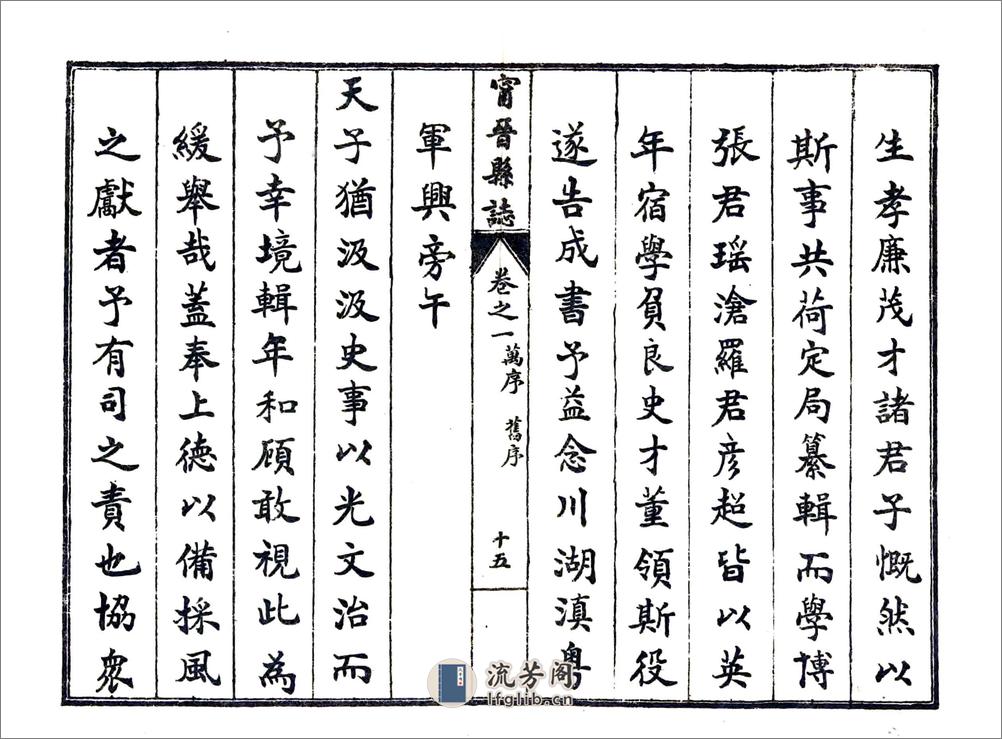 生孝廉茂才諸君子慨然以
斯事共荷定局纂輯而學博
張君瑶滄羅君彦超皆以英
年宿學負良史才董領斯役
遂告成書予益念川湖滇粤
軍興旁午
甯晉縣誌 卷之一 萬序 舊序 十五
天子猶汲汲史事以光文治而
予幸境輯年和顧敢視此為
緩舉哉蓋奉上德以備採風
之獻者予有司之責也協衆
流芳阁
lfglib.cn